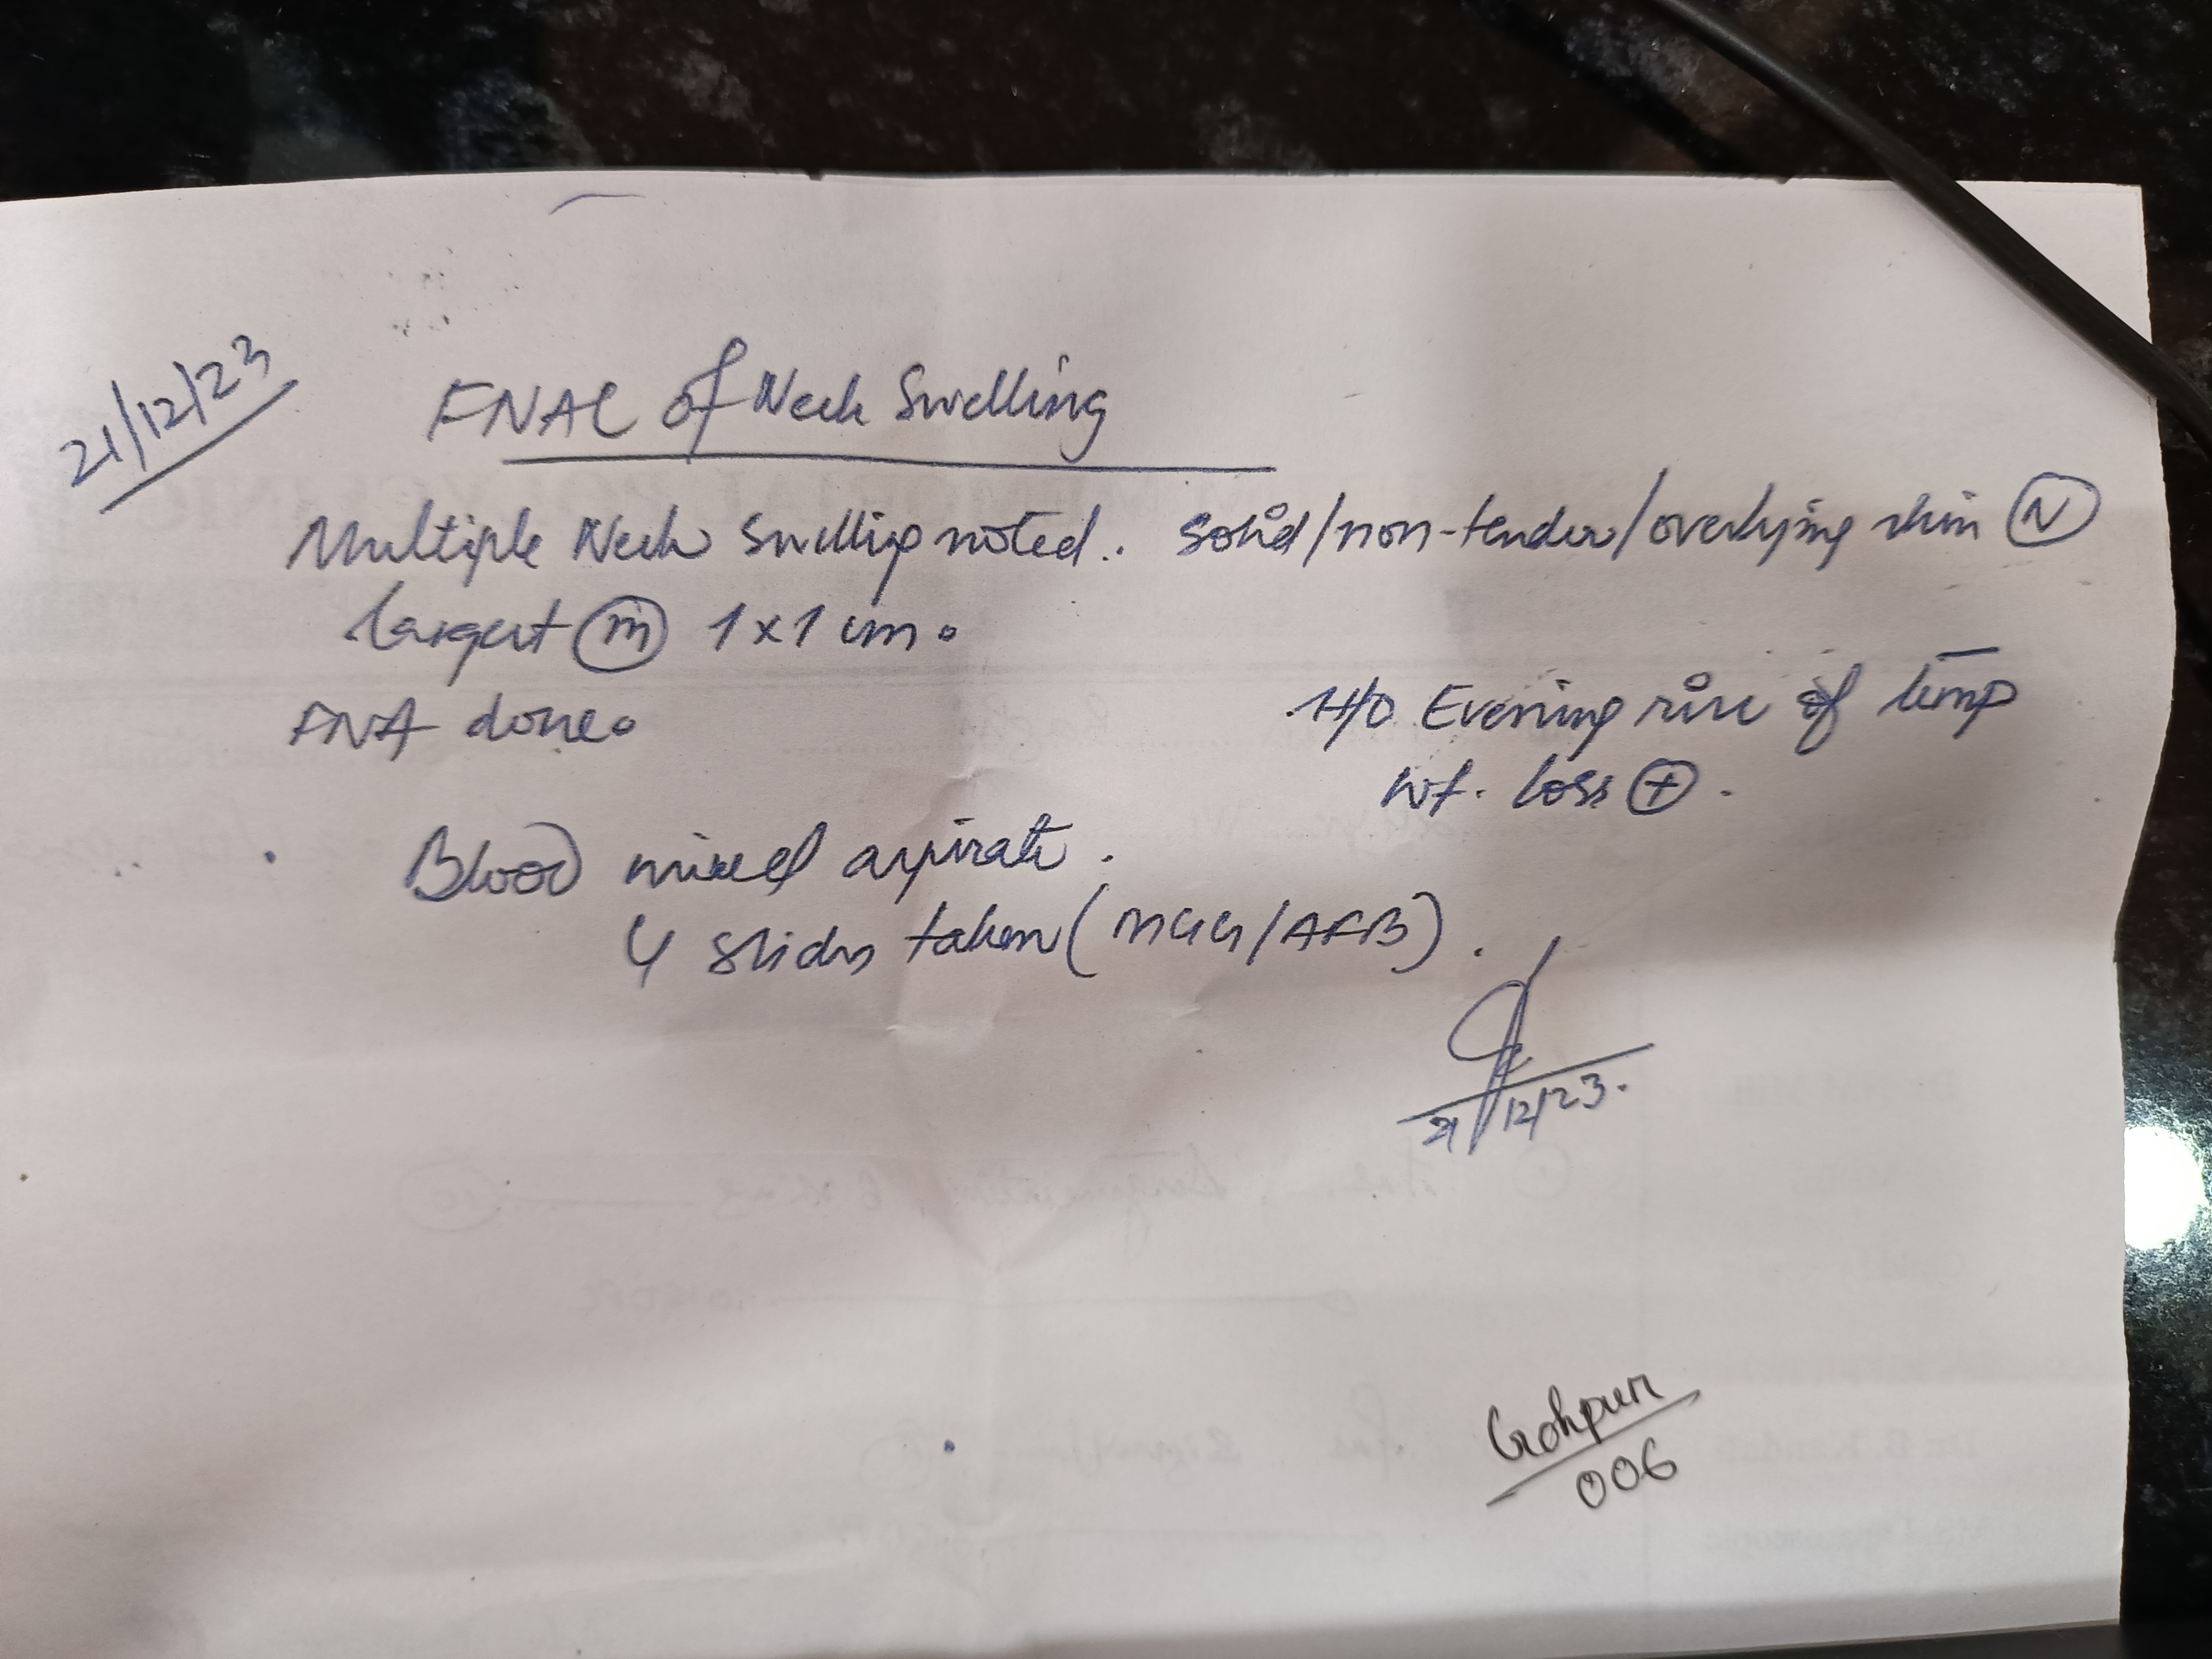 21/12/23
FNAC of Neck Swelling
Multiple Neck Swelling noted. Solid/non-tender/overlying skin N
largest m 1x1 cm.
FNA done.
H/O Evening rise of temp
wt. loss +.
Blood mixed aspirate.
4 slides taken (MGG/AFB).
21/12/23.
Gohpur
006